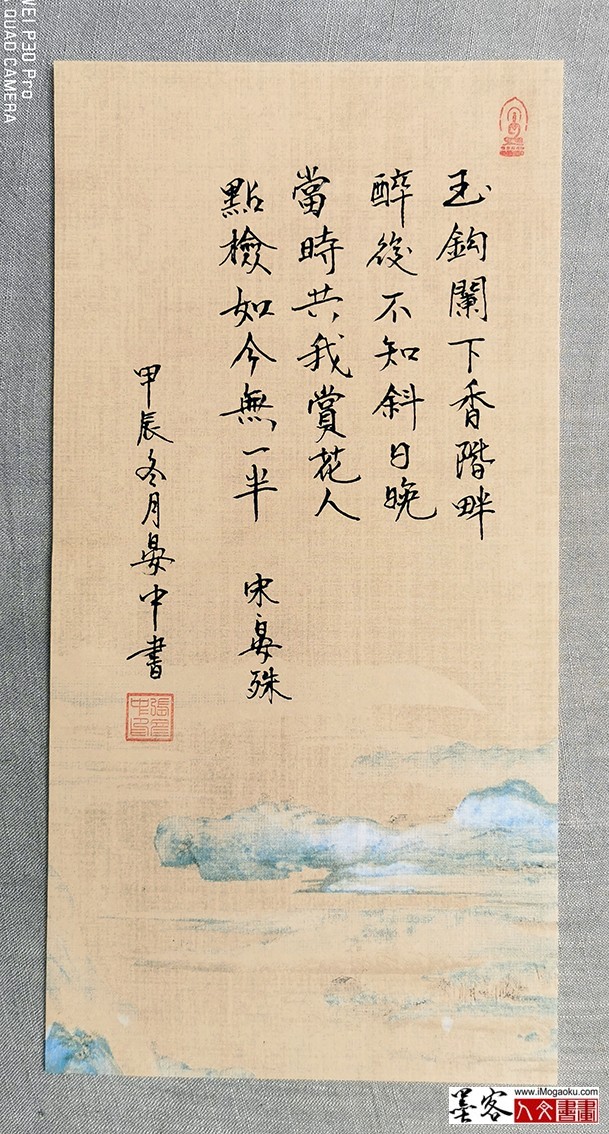 玉鈎闌下香階畔
醉後不知斜日晚
當時共我賞花人
點檢如今無一半 宋晏殊
甲辰冬月晏中書
WEI P30 Pro
QUAD CAMERA
墨客
www.iMogaoku.com
人文書畫